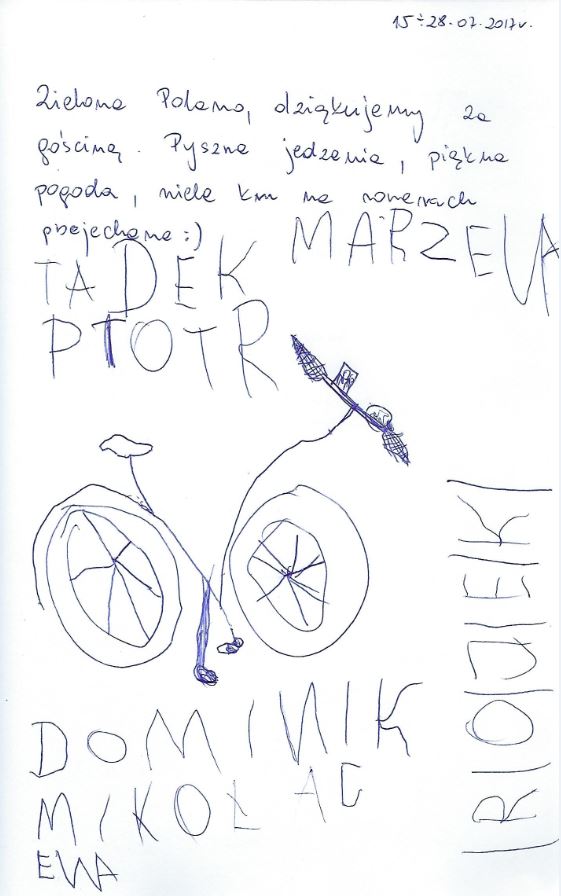 15÷28.07.2017r.
Zielona Polano, dziękujemy za
gościnę. Pyszne jedzenie, piękna
pogoda, wiele km na rowerach
przejechane :)
MARZENA
TADEK
PIOTR
DOMINIK
MIKOŁAJ
EWA